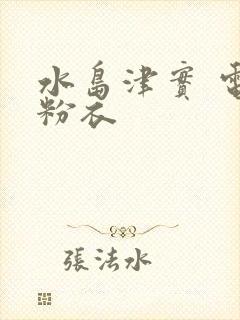 水島津實
粉衣
張法水